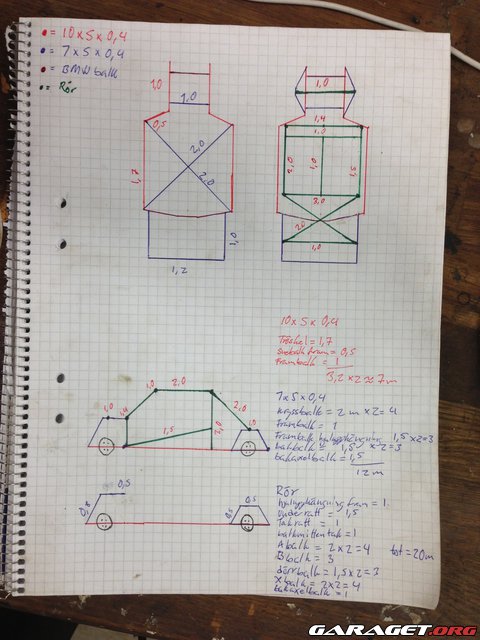 = 10x5x0,4
= 7x5x0,4
= BMW balk
= Rör
1,0
1,0
0,5
2,0
2,0
1,7
1,0
1,2
1,0
1,4
1,0
2,0
1,0
1,5
3,0
2,0
1,0
10x5x0,4
Tröskel = 1,7
= 0,5
Frambalk = 1
3,2 x 2 ≈ 7m
1,0
2,0
1,0
2,0
1,5
2,0
1,0
7x5x0,4
Kryssbalk = 2m x 2 = 4
Frambalk = 1
Frambalk hjulupphängning 1,5 x 2 = 3
bakbalk = 1,5 x 2 = 3
bakaxelbalk = 1,5
12m
0,5
0,8
0,5
0,5
Rör
hjulupphängning fram = 1
under ratt = 1,5
Tak ratt = 1
balk mitten tak = 1
A balk = 2x2 = 4 tot = 20m
B balk = 3
dörrbalk = 1,5 x 2 = 3
X balk = 2x2 = 4
bakaxelbalk = 1
GARAGET.ORG